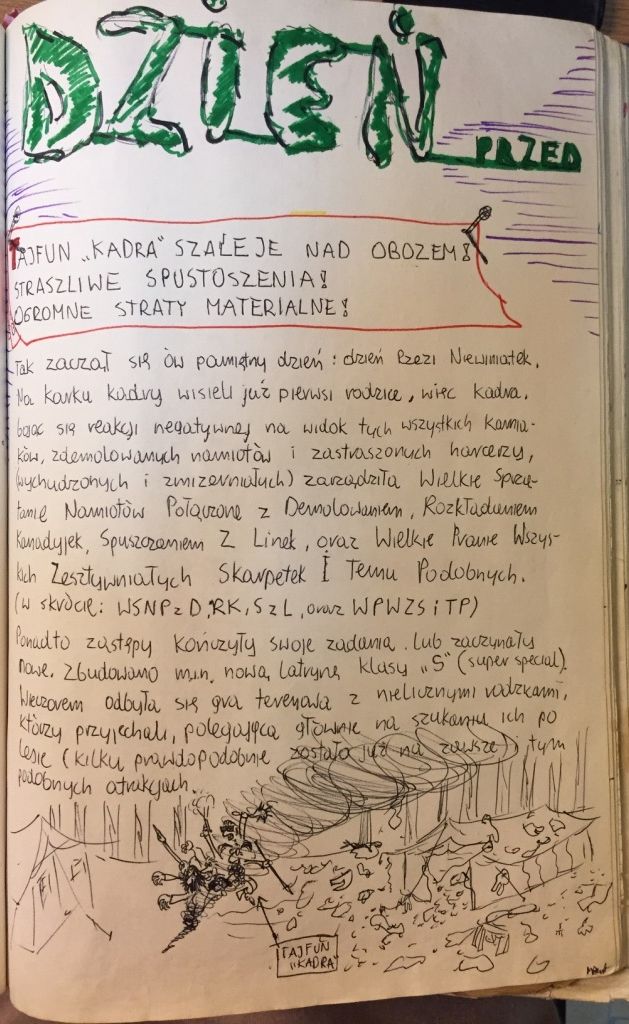 DZIEŃ
PRZED
TAJFUN „KADRA” SZALEJE NAD OBOZEM!
STRASZLIWE SPUSTOSZENIA!
OGROMNE STRATY MATERIALNE!
Tak zaczął się ów pamiętny dzień: dzień Rzezi Niewiniątek.
Na karku kadry wisieli już pierwsi rodzice, więc kadra,
bojąc się reakcji negatywnej na widok tych wszystkich
ków, zdemolowanych namiotów i zastraszonych harcerzy,
(wychudzonych i zmizerniałych) zarządziła Wielkie Sprzą-
tanie Namiotów Połączone z Demolowaniem, Rozkładaniem
Kanadyjek, Spuszczaniem Z Linek, oraz Wielkie Pranie Wszys-
kich Zesztywniałych Skarpetek I Temu Podobnych.
(w skrócie: WSNPzD, RK, SzL, oraz WPWZSiTP)
Ponadto zastępy kończyły swoje zadania. Lub zaczynały
nowe. Zbudowano m.in. nową latrynę klasy „S” (super special).
Wieczorem odbyła się gra terenowa z nielicznymi rodzicami,
którzy przyjechali, polegająca głównie na szukaniu ich po
lesie (kilku prawdopodobnie zostało już na zawsze) i tym
podobnych atrakcjach.
TAJFUN
„KADRA”